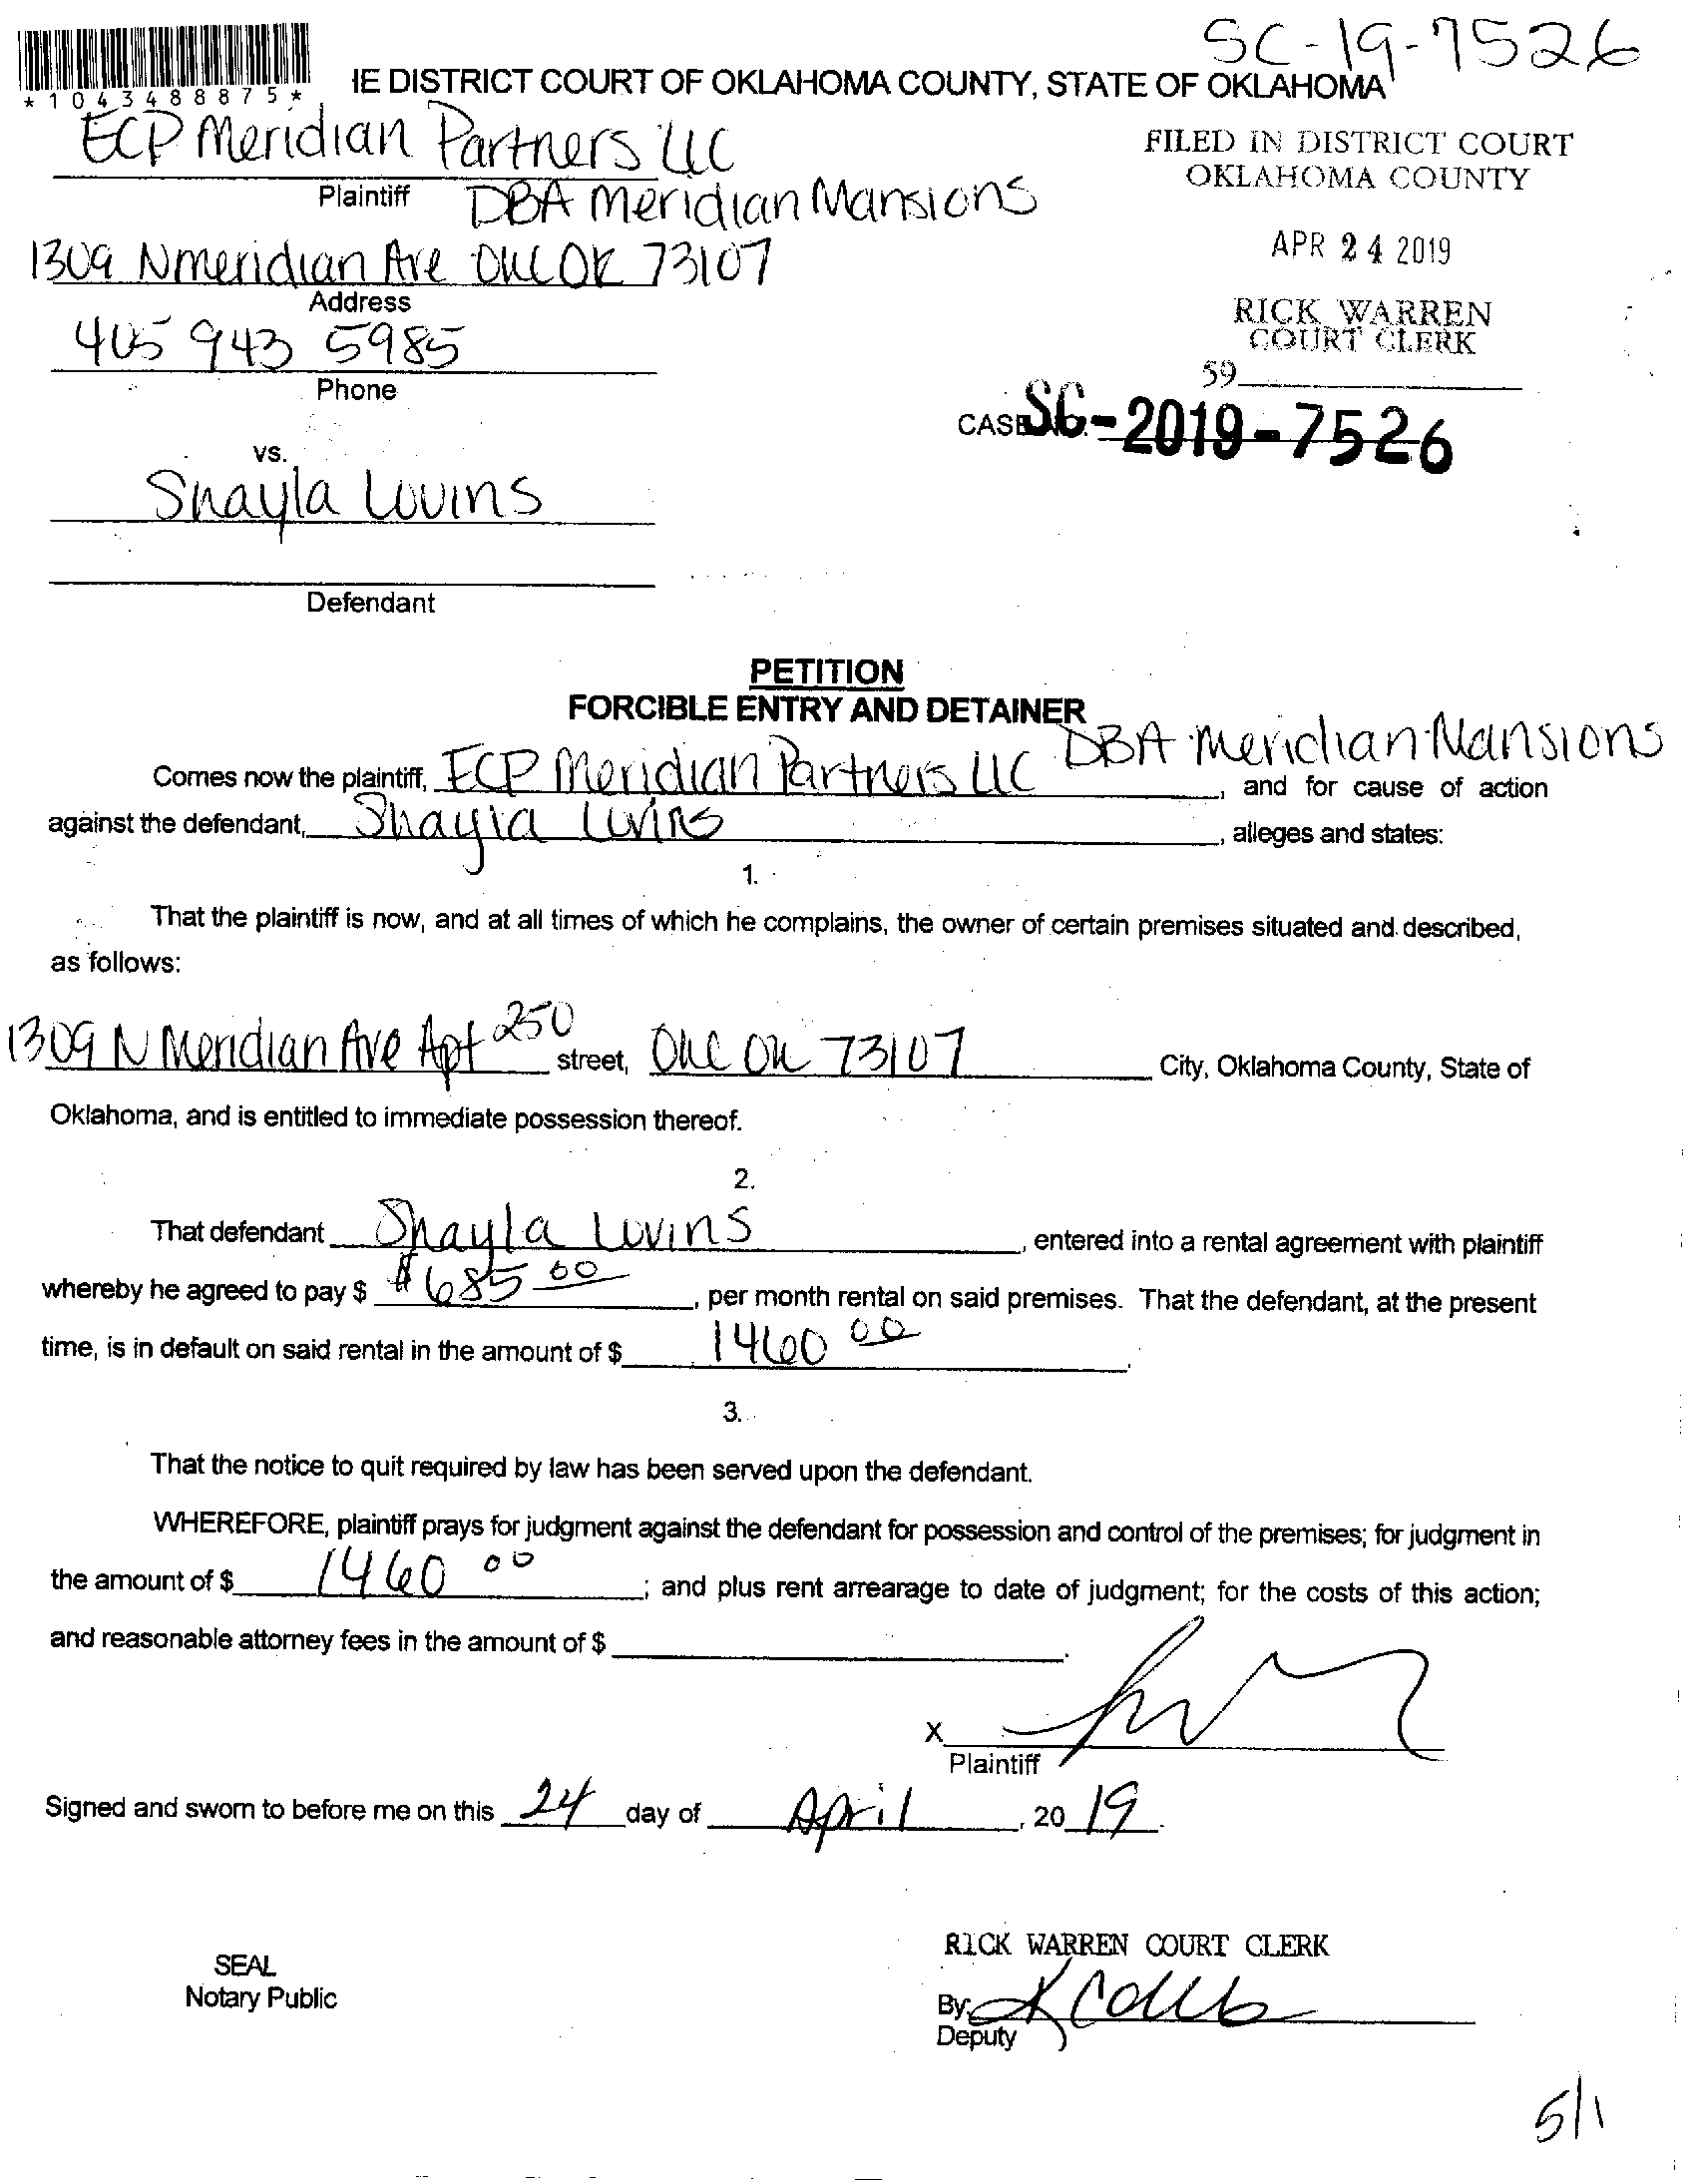 SC-19-7526
*1043488875*
IE DISTRICT COURT OF OKLAHOMA COUNTY, STATE OF OKLAHOMA
ECP Meridian Partners LLC
Plaintiff DBA Meridian Mansions
FILED IN DISTRICT COURT
OKLAHOMA COUNTY
1309 N Meridian Ave OKC OK 73107
Address
APR 24 2019
405 943 5985
Phone
RICK WARREN
COURT CLERK
59
CASE NO. SC-2019-7526
vs.
Shayla Lovins
Defendant
PETITION
FORCIBLE ENTRY AND DETAINER
Comes now the plaintiff, ECP Meridian Partners LLC DBA Meridian Mansions, and for cause of action
against the defendant, Shayla Lovins, alleges and states:
1.
That the plaintiff is now, and at all times of which he complains, the owner of certain premises situated and described,
as follows:
1309 N Meridian Ave Apt 250 street, OKC OK 73107 City, Oklahoma County, State of
Oklahoma, and is entitled to immediate possession thereof.
2.
That defendant Shayla Lovins, entered into a rental agreement with plaintiff
whereby he agreed to pay $ $685 00, per month rental on said premises. That the defendant, at the present
time, is in default on said rental in the amount of $ 1460 00.
3.
That the notice to quit required by law has been served upon the defendant.
WHEREFORE, plaintiff prays for judgment against the defendant for possession and control of the premises; for judgment in
the amount of $ 1460 00; and plus rent arrearage to date of judgment; for the costs of this action;
and reasonable attorney fees in the amount of $ .
X
Plaintiff
Signed and sworn to before me on this 24 day of April, 20 19.
RICK WARREN COURT CLERK
SEAL
Notary Public
By
Deputy
5/1